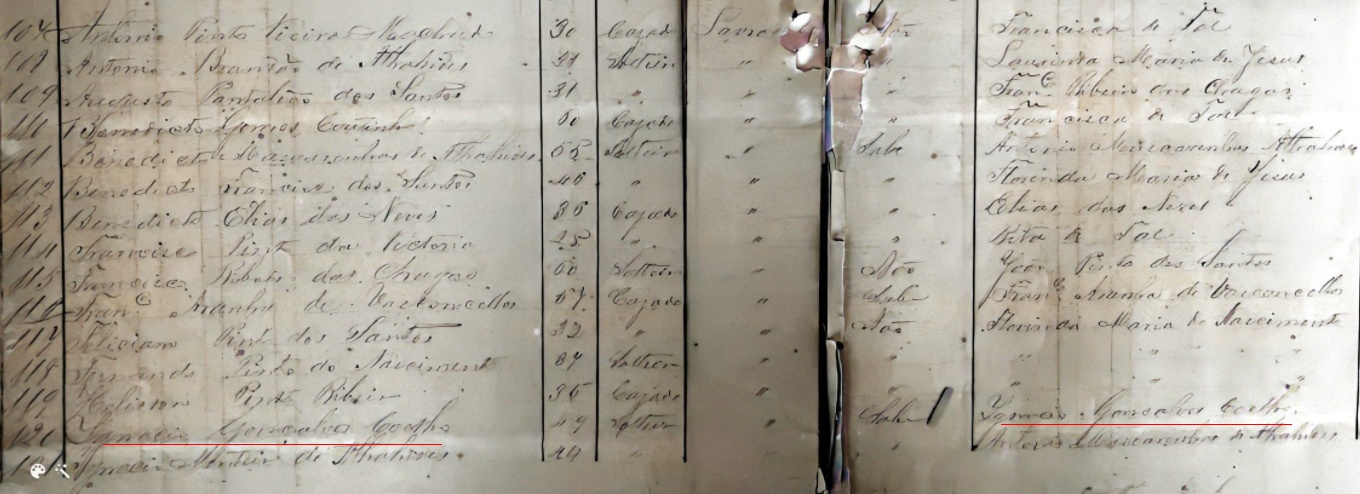 Antonio Pinto Vieira Machado 30 Cazado Lavrador Não Francisca de Tal
108 Antonio Brandão de Athahides Solteiro " " Laurinda Maria de Jesus
109 Augusto Pantalião dos Santos 31 " " " Fran.co Ribeiro das Chagas
110 Benedicto Gomes Coutinho 60 Cazado " " Francisca de Tal
111 Benedicto Mascarenhas de Athahides 58 Solteiro " Sabe Antonio Mascarenhas Athahides
112 Benedicto Francisco dos Santos 46 " " " Florinda Maria de Jesus
113 Benedicto Elias das Neves 36 Cazado " " Elias das Neves
114 Francisco Pinto da Victoria 25 " " " Rita de Tal
115 Francisco Ribeiro das Chagas 60 Solteiro " Não João Pinto dos Santos
116 Fran.co Aranha de Vasconcellos 57 Cazado " Sabe Fran.co Aranha de Vasconcellos
117 Feliciano Pinto dos Santos 32 " " Não Florinda Maria do Nascimento
118 Fernando Pinto do Nascimento Solteiro " " " "
119 Pinto Ribeiro 36 Cazado " " "
120 Ignacio Gonsalves Coelho 49 Solteiro " Sabe Ignacio Gonsalves Coelho
Ignacio Monteiro de Athahides 44 " " " Antonio Mascarenhas de Athahides